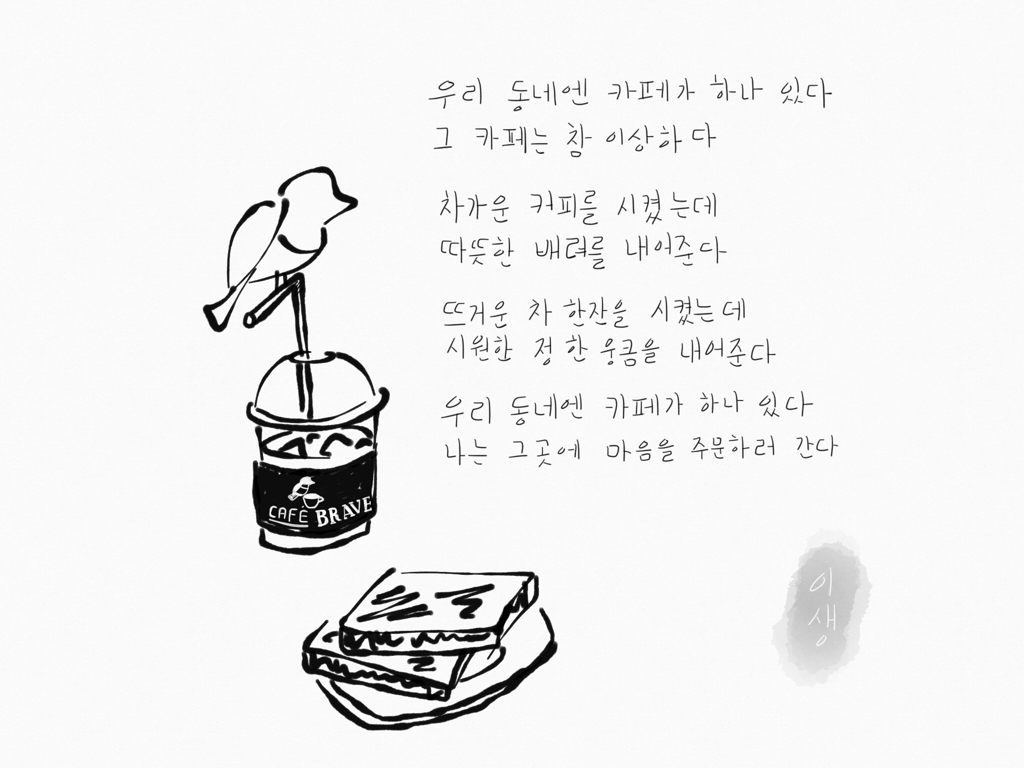 우리 동네엔 카페가 하나 있다
그 카페는 참 이상하다
차가운 커피를 시켰는데
따뜻한 배려를 내어준다
뜨거운 차 한잔을 시켰는데
시원한 정 한 웅큼을 내어준다
우리 동네엔 카페가 하나 있다
나는 그곳에 마음을 주문하러 간다
CAFÉ BRAVE
이생